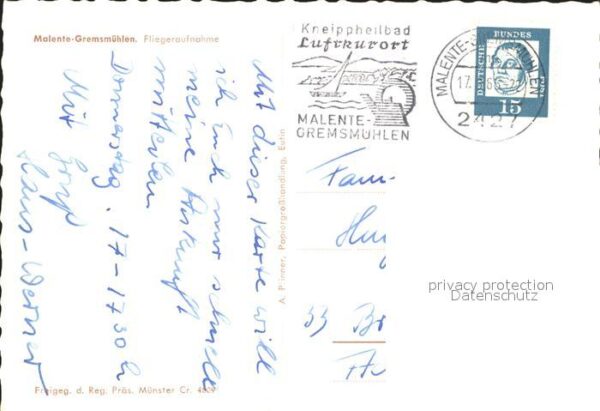 Malente-Gremsmühlen. Fliegeraufnahme
Mit dieser Karte will
ich Euch nur schnell
meine Ankunft
mitteilen
Donnerstag. 17-1730 h
Mit Gruß
Hans-Werner
Freigeg. d. Reg. Präs. Münster Cr. 4809
A. Pinner, Papiergroßhandlung, Eutin
Kneippheilbad
Luftkurort
MALENTE-
GREMSMÜHLEN
MALENTE-GREMSMÜHLEN
17.
2427
DEUTSCHE BUNDESPOST
15
Fam-
Hug
53 Bo
privacy protection
Datenschutz